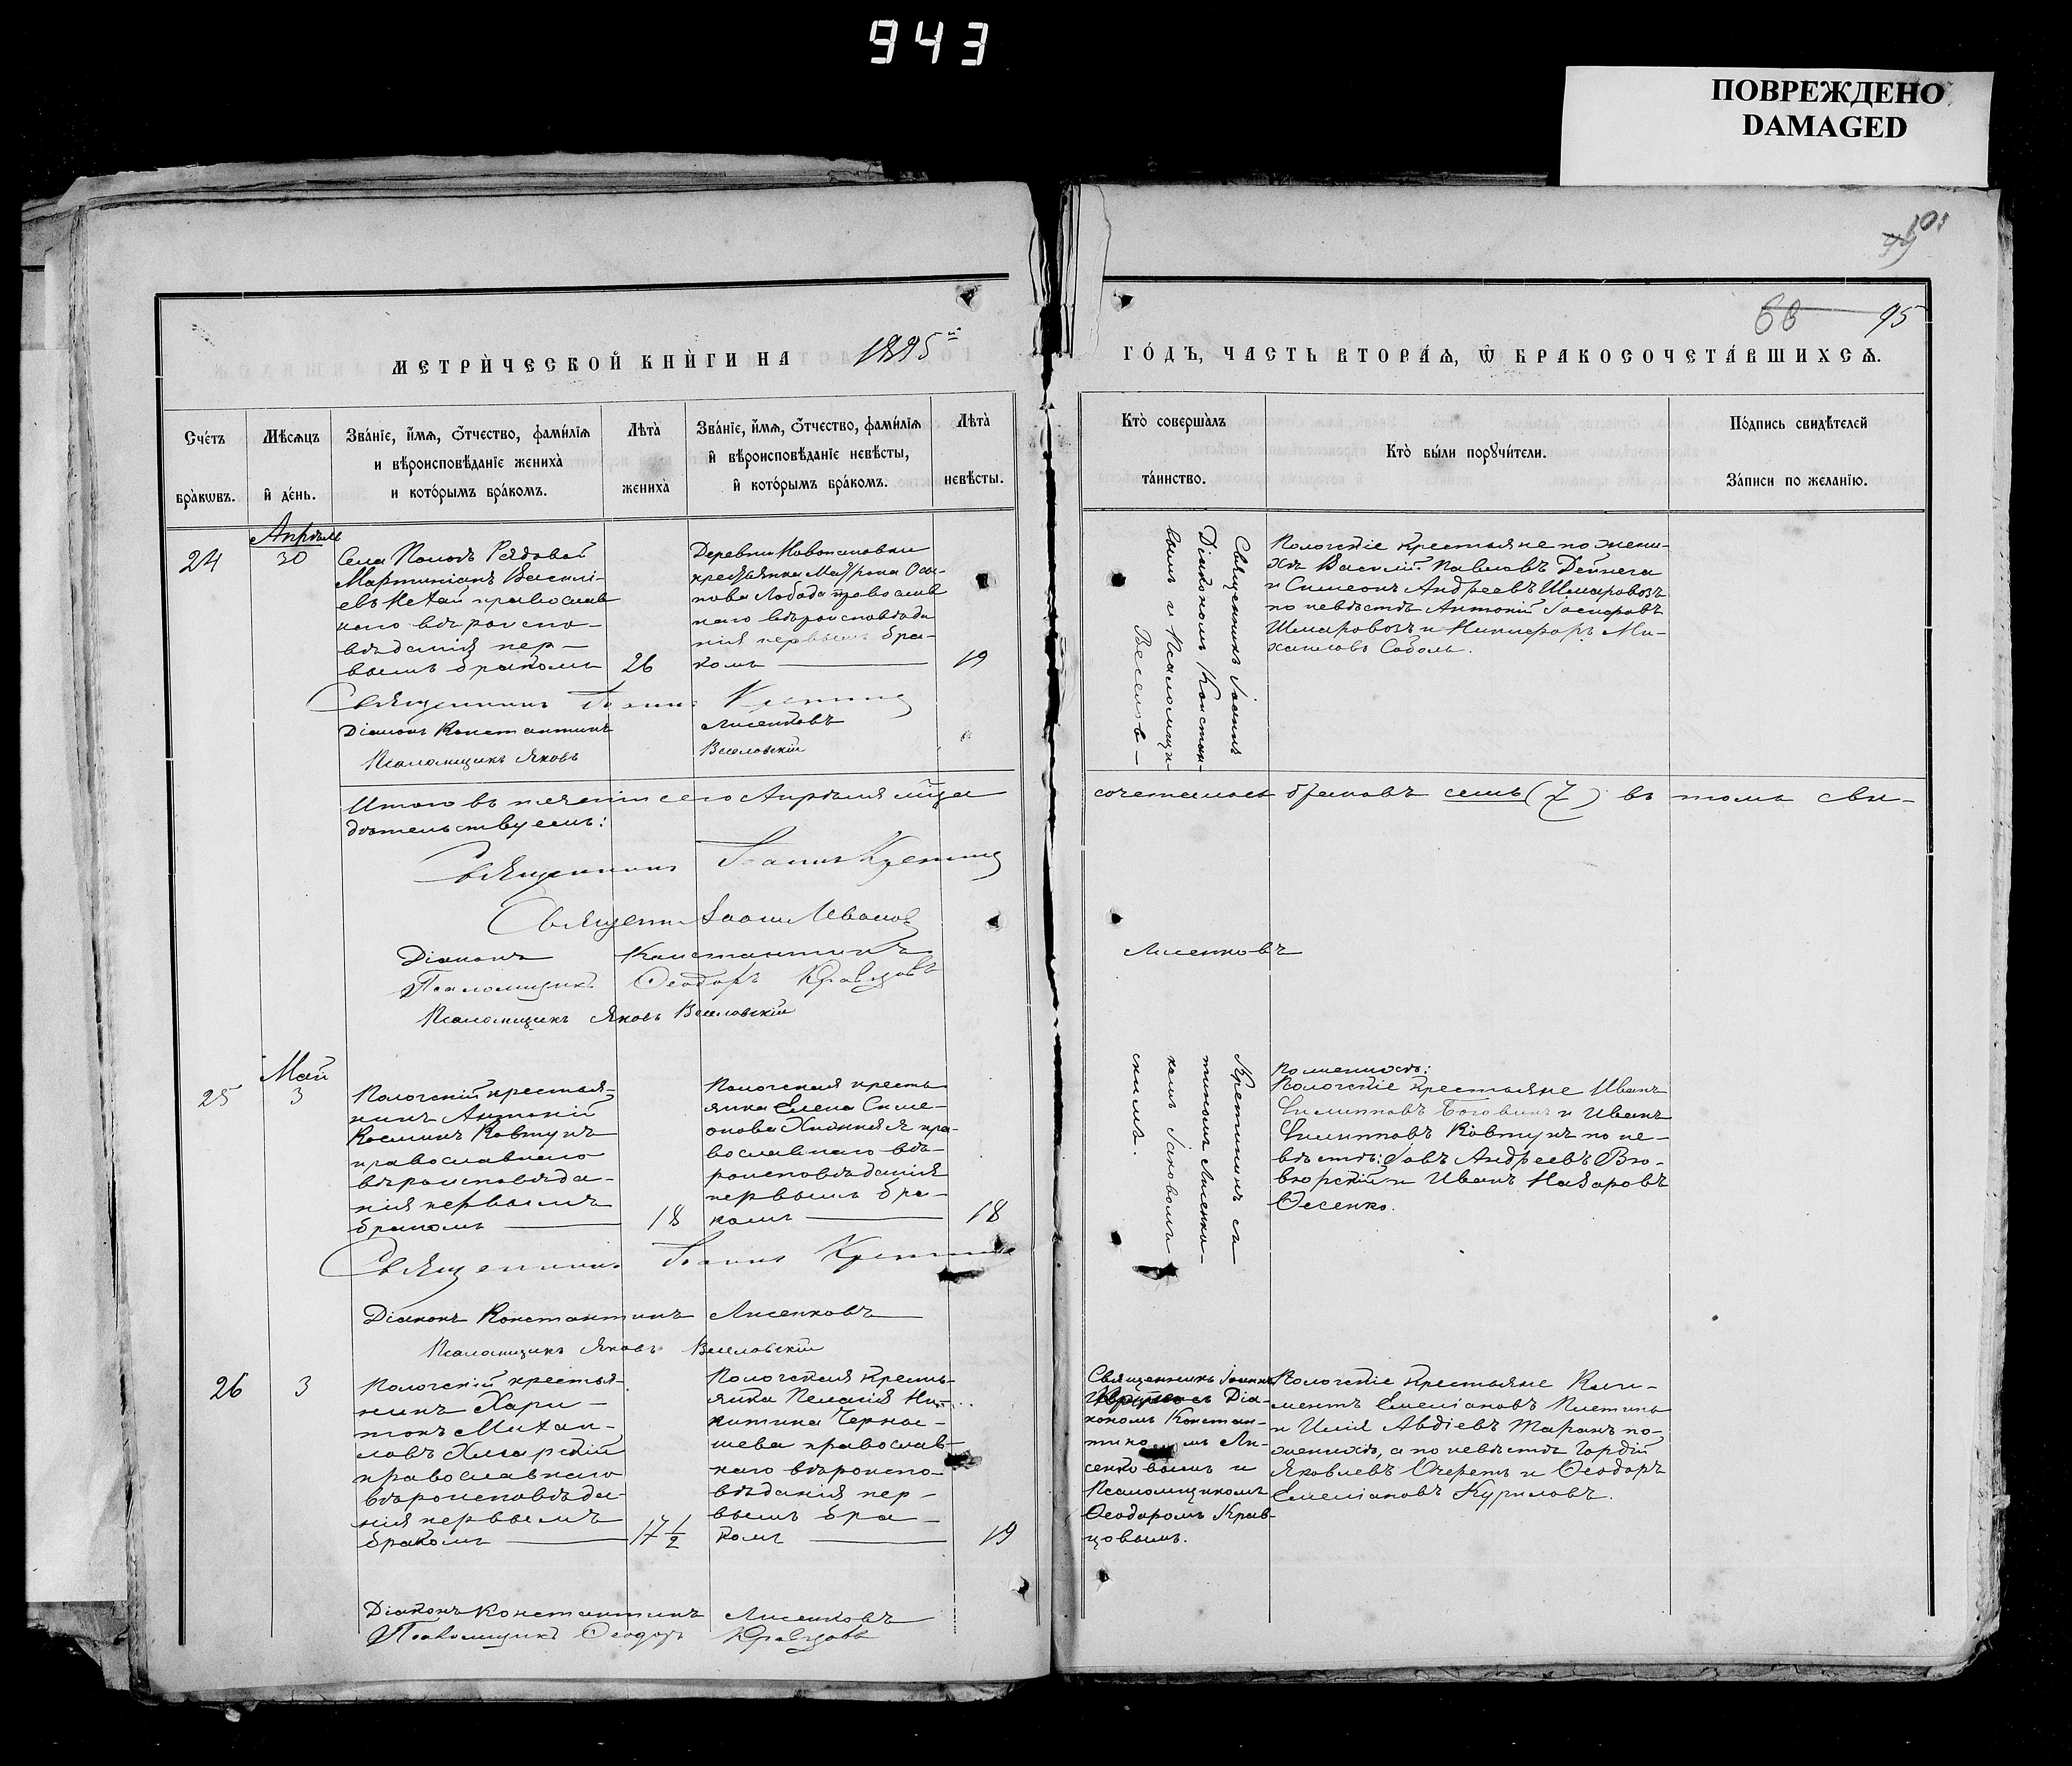 943
ПОВРЕЖДЕНО
DAMAGED
101
99
68
95
МЕТРИ́ЧЕСКОЙ КНИ́ГИ НА 1895 й
ГО́ДЪ, ЧАСТЬ ВТОРА́Ѧ, Ѿ БРАКОСОЧЕТА́ВШИХСѦ.
Сче́тъ
бра̀кѡвъ.
Мѣ́сѧцъ
и҆ де́нь.
Зва́нїе, и҆́мѧ, ѻ҆́тчество, фамѝлїѧ
и вѣроисповѣ́данїе жениха̀
и кото́рымъ бра́комъ.
Лѣта̀
жениха̀
Зва́нїе, и҆́мѧ, ѻ҆́тчество, фамѝлїѧ
и҆ вѣроисповѣ́данїе невѣ́сты,
и҆ кото́рымъ бра́комъ.
Лѣта̀
невѣ́сты.
Кто̀ соверша̀лъ
та́инство.
Кто̀ бы́ли порꙋчи́тели.
По́дпись свидѣ́телей
За́писи по жела́нїю.
Апрѣль
24
30
Села Пологъ Рядовой
Мартиніанъ Василі-
евъ Нетай православ
наго вѣроиспо-
вѣданія пер-
вымъ бракомъ
26
Деревни Новоселовки
крестьянка Матрона Оси-
пова Лобода православ
наго вѣроисповѣда
нія первымъ бра-
комъ
19
Священникъ Іоаннъ
Діакономъ Констан-
вымъ и Псаломщи-
Пологскіе крестьяне по жени-
хѣ Василій Павловъ Дейнега
и Симеонъ Андреевъ Шмаровозъ
по невѣстѣ Антоній Іосифовъ
Шмаровозъ и Никифоръ Ми-
хаиловъ Соболь.
Священникъ Іоаннъ
Діаконъ Константинъ Лисенковъ
Псаломщикъ Яковъ Веселовскій
Итого въ теченіи сего Апрѣля м-ца сочеталось браковъ семь (7) въ томъ сви-
дѣтельствуемъ:
Священникъ Іоаннъ
Іоаннъ Ивановъ
Діаконъ Константинъ Лисенковъ
Псаломщикъ Ѳеодоръ Кравцовъ
Псаломщикъ Яковъ Веселовскій
Май
25
3
Пологскій крестья-
нинъ Антоній
Косминъ Ковтунъ
православнаго
вѣроисповѣда-
нія первымъ
бракомъ
18
Пологская кресть
янка Елена Симе-
онова пра-
вославнаго вѣ-
роисповѣданія
первымъ бра-
комъ
18
съ
тиномъ Лисенко-
комъ Іаковомъ
скимъ.
По женихѣ:
Пологскіе крестьяне Иванъ
Филипповъ и Иванъ
Филипповъ Ковтунъ по не-
вѣстѣ: Іовъ Андреевъ
и Иванъ Назаровъ
Фесенко.
Священникъ Іоаннъ
Діаконъ Константинъ Лисенковъ
Псаломщикъ Яковъ Веселовскій
26
3
Пологскій крестья-
нинъ Хари-
тонъ Михаи-
ловъ Хмарскій
православнаго
вѣроисповѣда-
нія первымъ
бракомъ
17 1/2
Пологская кресть-
янка Пелагія Ни-
китина Черны-
шева православ-
наго вѣроиспо-
вѣданія пер-
вымъ бра-
комъ
19
Священникъ Іоаннъ
съ Діа-
кономъ Констан-
Ли-
сенковымъ и
Псаломщикомъ
Ѳеодоромъ Крав-
цовымъ.
Пологскіе крестьяне Кли-
ментъ Емеліановъ
и Илія Авдіевъ Таранъ по
женихѣ, а по невѣстѣ Гордій
Яковлевъ Очеретъ и Ѳеодоръ
Емеліановъ Куриловъ.
Діаконъ Константинъ Лисенковъ
Псаломщикъ Ѳеодоръ Кравцовъ